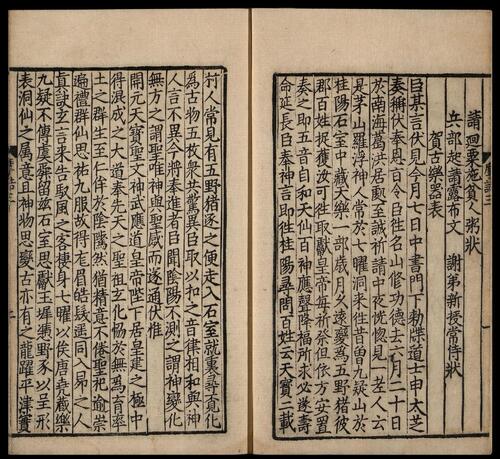 請迴粟施貧人粥狀
兵部起請露布文　謝弟新授常侍狀
賀古樂器表
臣某言伏見今月七日中書門下勅牒道士申太芝
奏稱伏奉恩旨令臣往名山修功德去六月二十日
於南海葛洪居勳至誠祈請中夜恍惚見一老人云
是茅山羅浮神人常於七曜洞來往昔曾九疑山於
桂陽石室中藏天樂一部歲月久遠變爲五野猪彼
郡百姓捉獲汝可往取獻皇帝每祈祭但依方安置
奏之即五音自和天仙百神應聲降福所求必遂壽
命延長臣奉神言即往桂陽尋問百姓云天寶二載
村人常見有五野猪逐之便走入石室就裏尋覓化
爲古物五枚衆共驚異臣取以和之音律相和與神
人言不異今將奉進者臣聞陰陽不測之謂神變化
無方之謂聖唯神與聖感而遂通伏惟
開元天寶聖文神武應道皇帝陛下居皇建之極中
得混成之大道奉先天之聖祖玄化暢於無爲育率
土之群生至仁侔於陰騭然猶精意不倦聖祀逾崇
遍禮群仙思祐九服故得厖眉皓髮遥同入昴之人
真訣玄言來告馭風之客棲身七曜以俟唐堯藏樂
九疑不傳虞舜留兹石室思獻玉墀攝野豕以呈形
表洞仙之属意且神物思變古亦有之龍躍平津寶